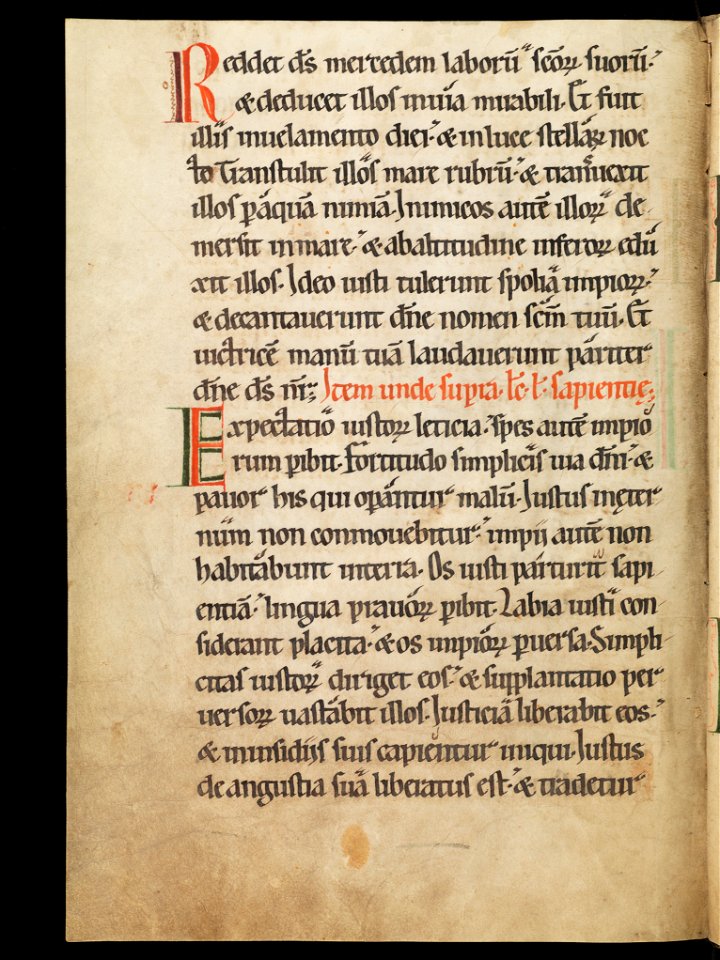 Reddet d̄s mercedem laborū sc̄oꝝ suorū.
& deducet illos in uia mirabili. Et fuit
illis in uelamento diei. & in luce stellaꝝ noc
te Transtulit illos mare rubrū. & transuexit
illos ꝑ aquā nimiā. Inimicos autē illoꝝ de
mersit in mare. & ab altitudine inferoꝝ edu
xit illos. Ideo iusti tulerunt spolia impioꝝ.
& decantauerunt dn̄e nomen sc̄m tuū. Et
uictricē manū tuā laudauerunt pariter
dn̄e d̄s nr̄; Item unde supra. lc̄. l. sapientię;
Expectatio iustoꝝ leticia. spes autē impio
rum ꝑibit. Fortitudo simplicis uia dn̄i. &
pauor his qui oꝑantur malū. Iustus in ęter
nūm non conmouebitur. impii autē non
habitabunt in terra. Os iusti parturit sapi
entiā. lingua prauoꝝ ꝑibit. Labia iusti con
siderant placita. & os impioꝝ ꝑuersa. Simpli
citas iustoꝝ diriget eos. & supplantatio per
uersoꝝ uastabit illos. Iusticiā liberabit eos.
& in insidiis suis capientur iniqui. Iustus
de angustia suā liberatus est. & tradetur